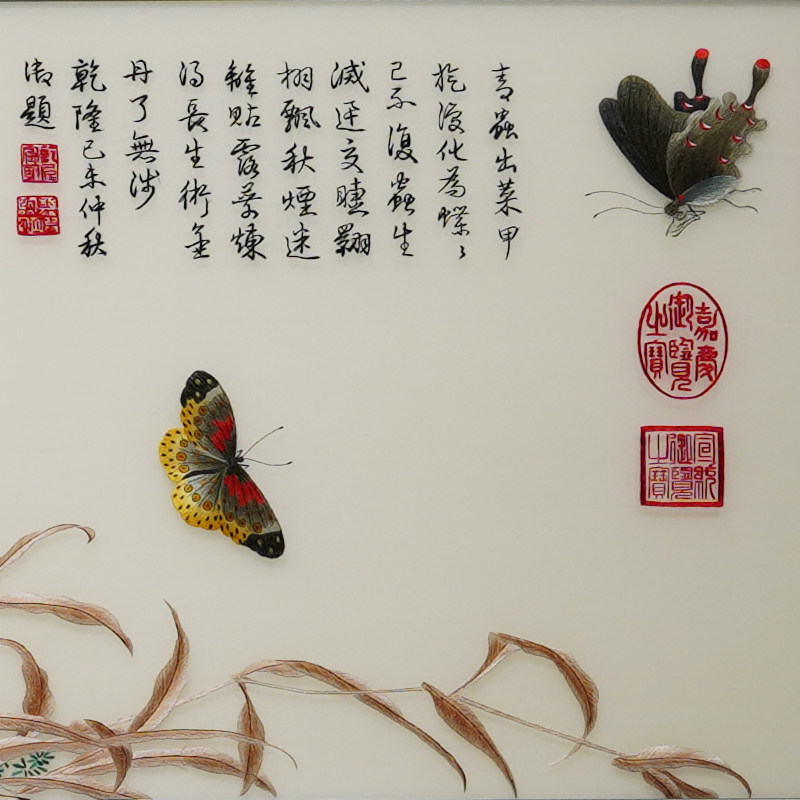 嘉慶
御覽
之寶
宣統
御覽
之寶
青蟲出菜甲
旋復化為蝶〻
已不復蟲生
滅迅交睫翾
栩飄秋煙迷
離貼露葉煉
得長生術金
丹了無涉
乾隆己未仲秋
御題